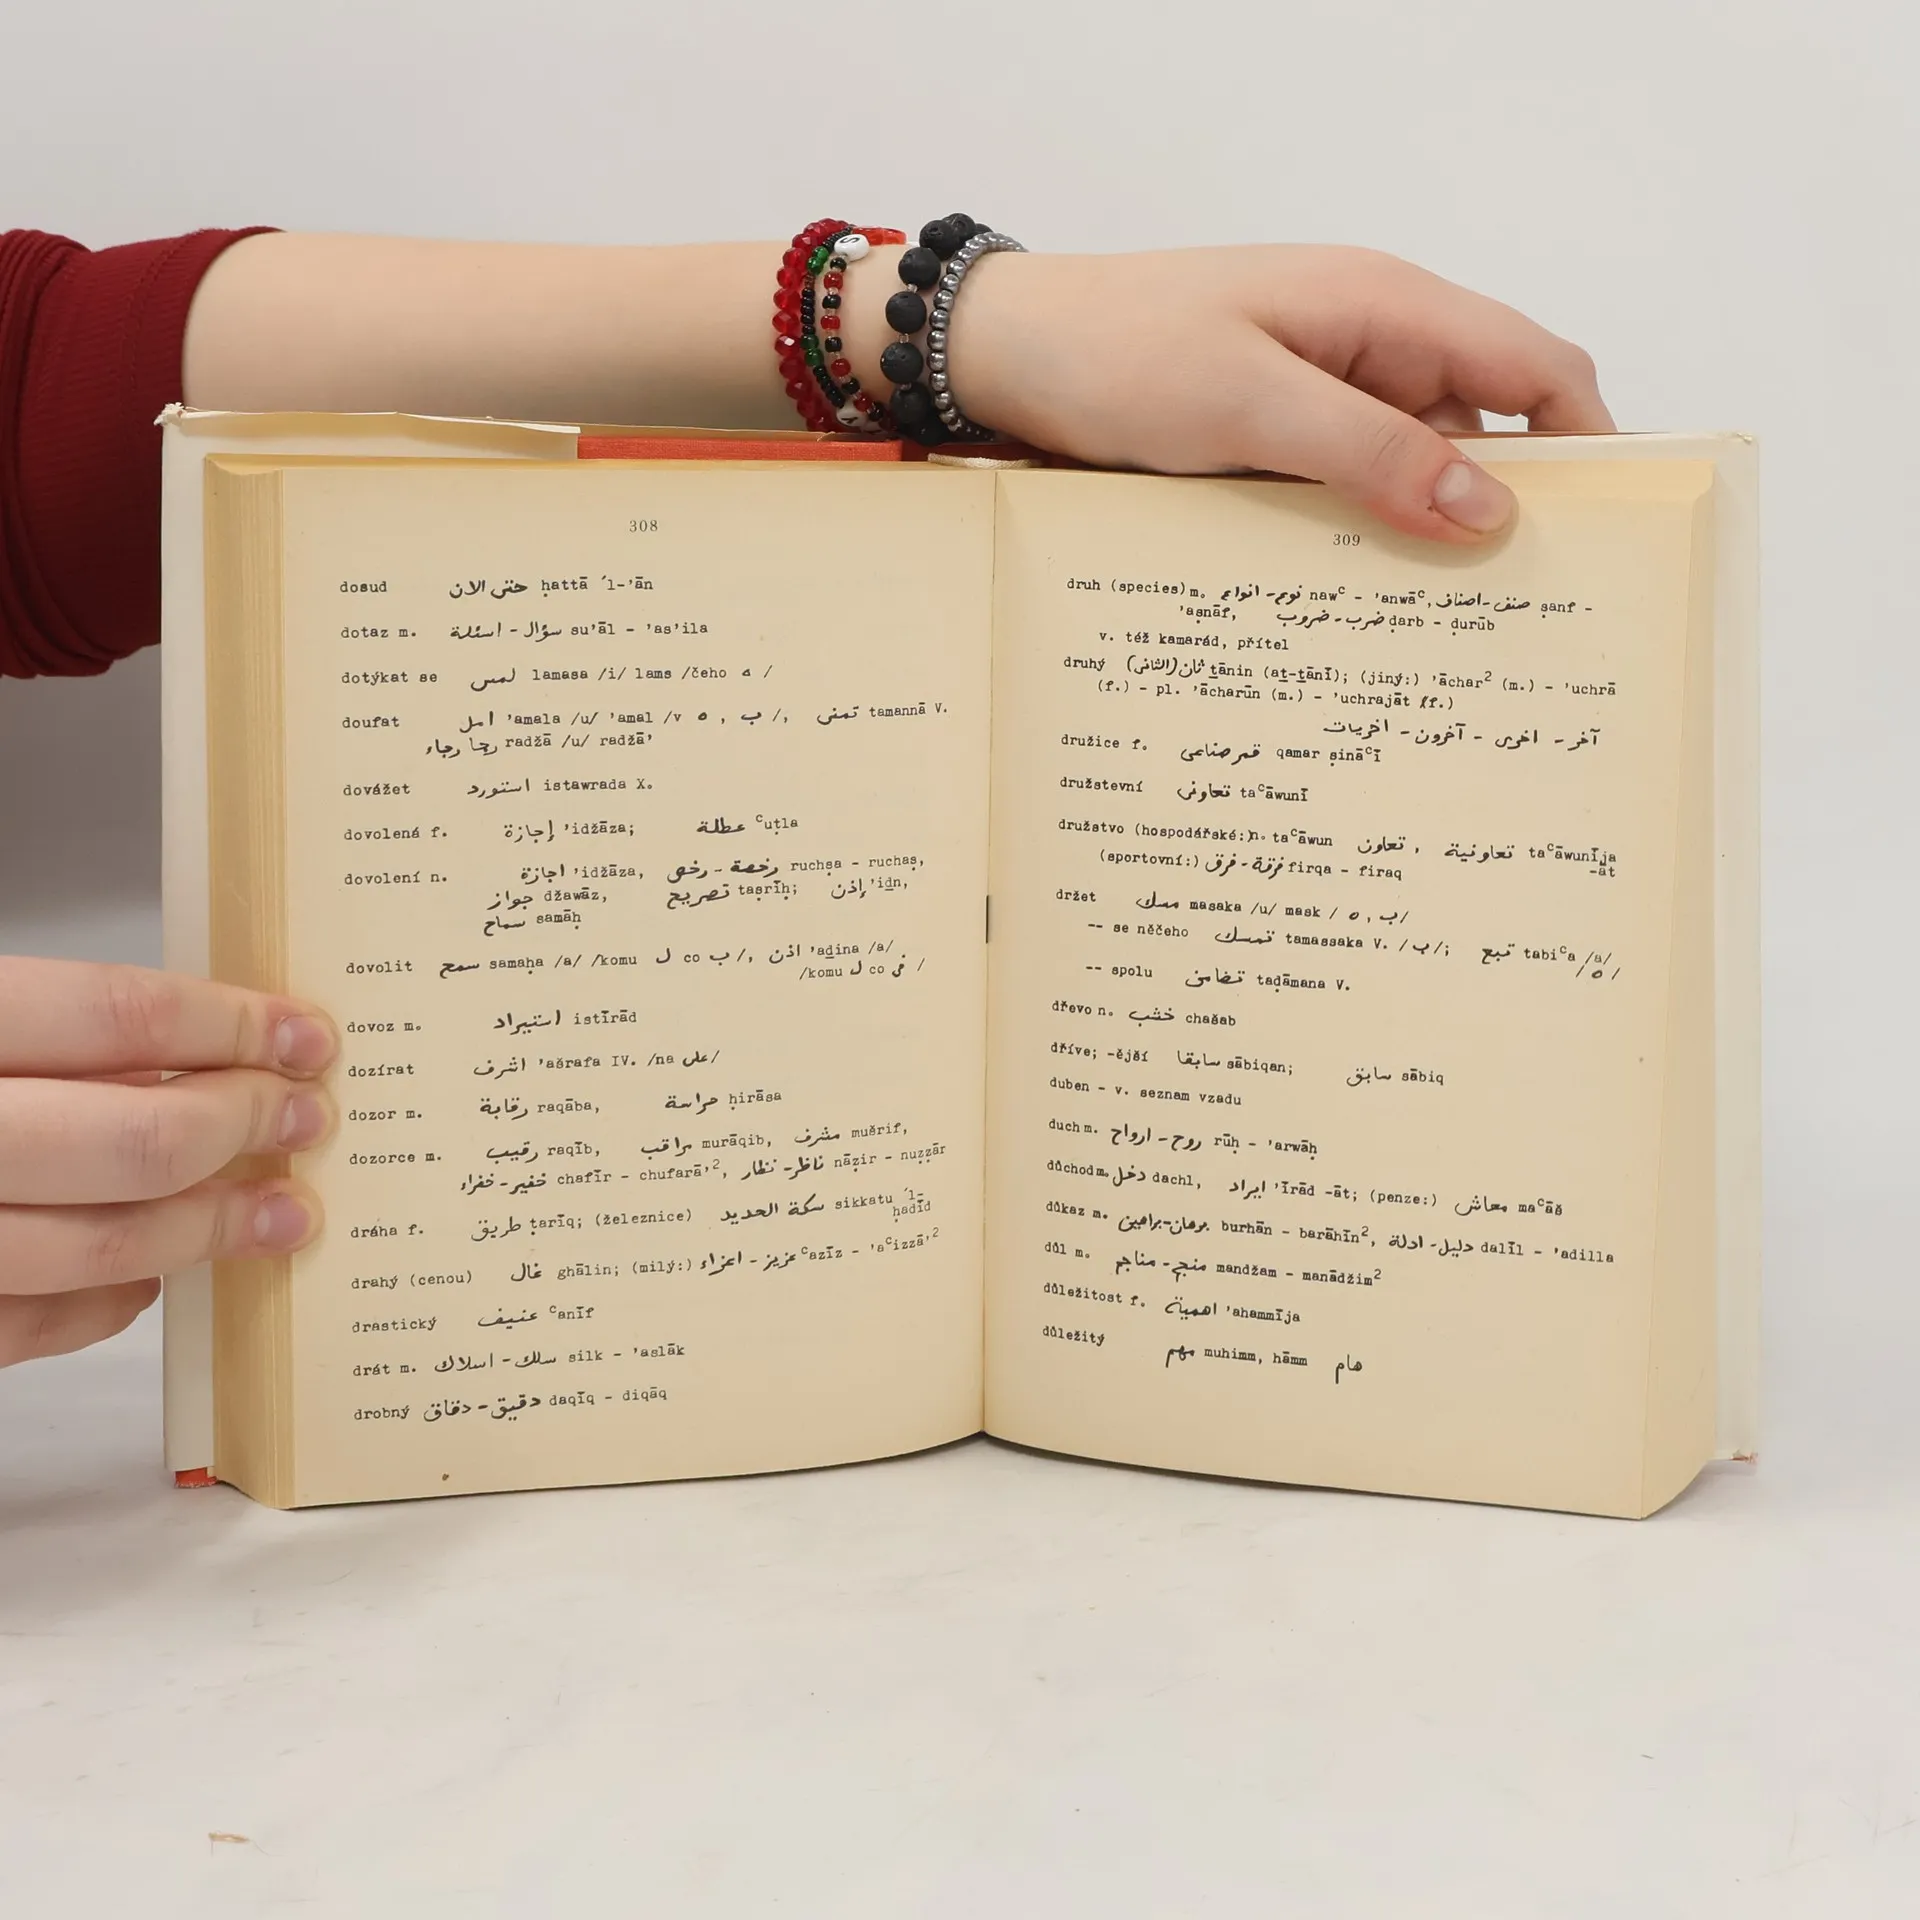 308
dosud حتى الان ḥattā ´l-'ān
dotaz m. سؤال - اسئلة su'āl - 'as'ila
dotýkat se لمس lamasa /i/ lams /čeho ه /
doufat امل 'amala /u/ 'amal /v ه , ب /, تمنى tamannā V.
رجا رجاء radžā /u/ radžā'
dovážet استورد istawrada X.
dovolená f. إجازة 'idžāza; عطلة ᶜuṭla
dovolení n. اجازة 'idžāza, رخصة - رخص ruchṣa - ruchaṣ,
جواز džawāz, تصريح taṣrīḥ; إذن 'iḏn,
سماح samāḥ
dovolit سمح samaḥa /a/ /komu ل co ب /, اذن 'aḏina /a/
/komu ل co في /
dovoz m. استيراد istīrād
dozírat اشرف 'ašrafa IV. /na على/
dozor m. رقابة raqāba, حراسة ḥirāsa
dozorce m. رقيب raqīb, مراقب murāqib, مشرف mušrif,
خفير - خفراء chafīr - chufarā'², ناظر - نظار nāẓir - nuẓẓār
dráha f. طريق ṭarīq; (železnice) سكة الحديد sikkatu ´l-
ḥadīd
drahý (cenou) غال ghālin; (milý:) عزيز - اعزاء ᶜazīz - 'aᶜizzā'²
drastický عنيف ᶜanīf
drát m. سلك - اسلاك silk - 'aslāk
drobný دقيق - دقاق daqīq - diqāq
309
druh (species) m. نوع - انواع nawᶜ - 'anwāᶜ, صنف - اصناف ṣanf -
'aṣnāf, ضرب - ضروب ḍarb - ḍurūb
v. též kamarád, přítel
druhý ثان (الثانى) ṯānin (aṯ-ṯānī); (jiný:) 'āchar² (m.) - 'uchrā
(f.) - pl. 'ācharūn (m.) - 'uchrajāt (f.)
آخر - اخرى - آخرون - اخريات
družice f. قمر صناعى qamar ṣināᶜī
družstevní تعاونى taᶜāwunī
družstvo (hospodářské:)n. taᶜāwun تعاون , تعاونية taᶜāwunīja
-āt
(sportovní:) فرقة - فرق firqa - firaq
držet مسك masaka /u/ mask / ه , ب/
-- se něčeho تمسك tamassaka V. / ب /; تبع tabiᶜa /a/
/ ه /
-- spolu تضامن taḍāmana V.
dřevo n. خشب chašab
dříve; -ější سابقا sābiqan; سابق sābiq
duben - v. seznam vzadu
duch m. روح - ارواح rūḥ - 'arwāḥ
důchod m. دخل dachl, ايراد 'īrād -āt; (penze:) معاش maᶜāš
důkaz m. برهان - براهين burhān - barāhīn², دليل - ادلة dalīl - 'adilla
důl m. منجم - مناجم mandžam - manādžim²
důležitost f. اهمية 'ahammīja
důležitý مهم muhimm, hāmm هام